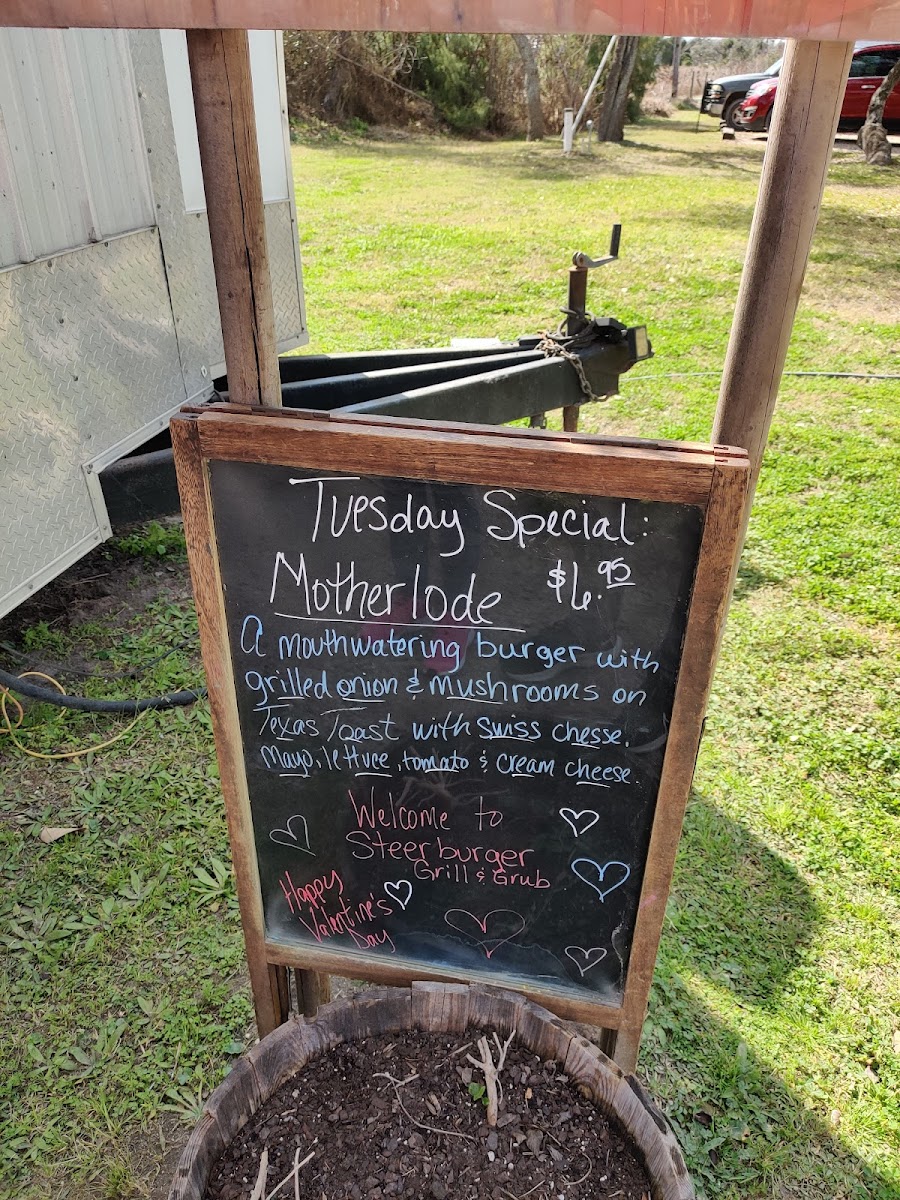 Tuesday Special:
Motherlode $6.95
a mouthwatering burger with
grilled onion & mushrooms on
Texas Toast with swiss chesse.
Mayo, lettuce, tomato & cream cheese.
Welcome to
Steerburger
Grill & Grub
Happy
Valentine's
Day